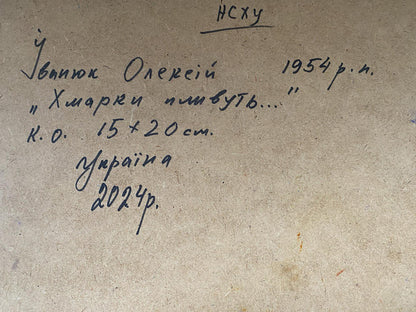 НСХУ
Іванюк Олексій 1954 р.н.
„Хмарки пливуть..."
к.о. 15×20 см.
Україна
2024р.